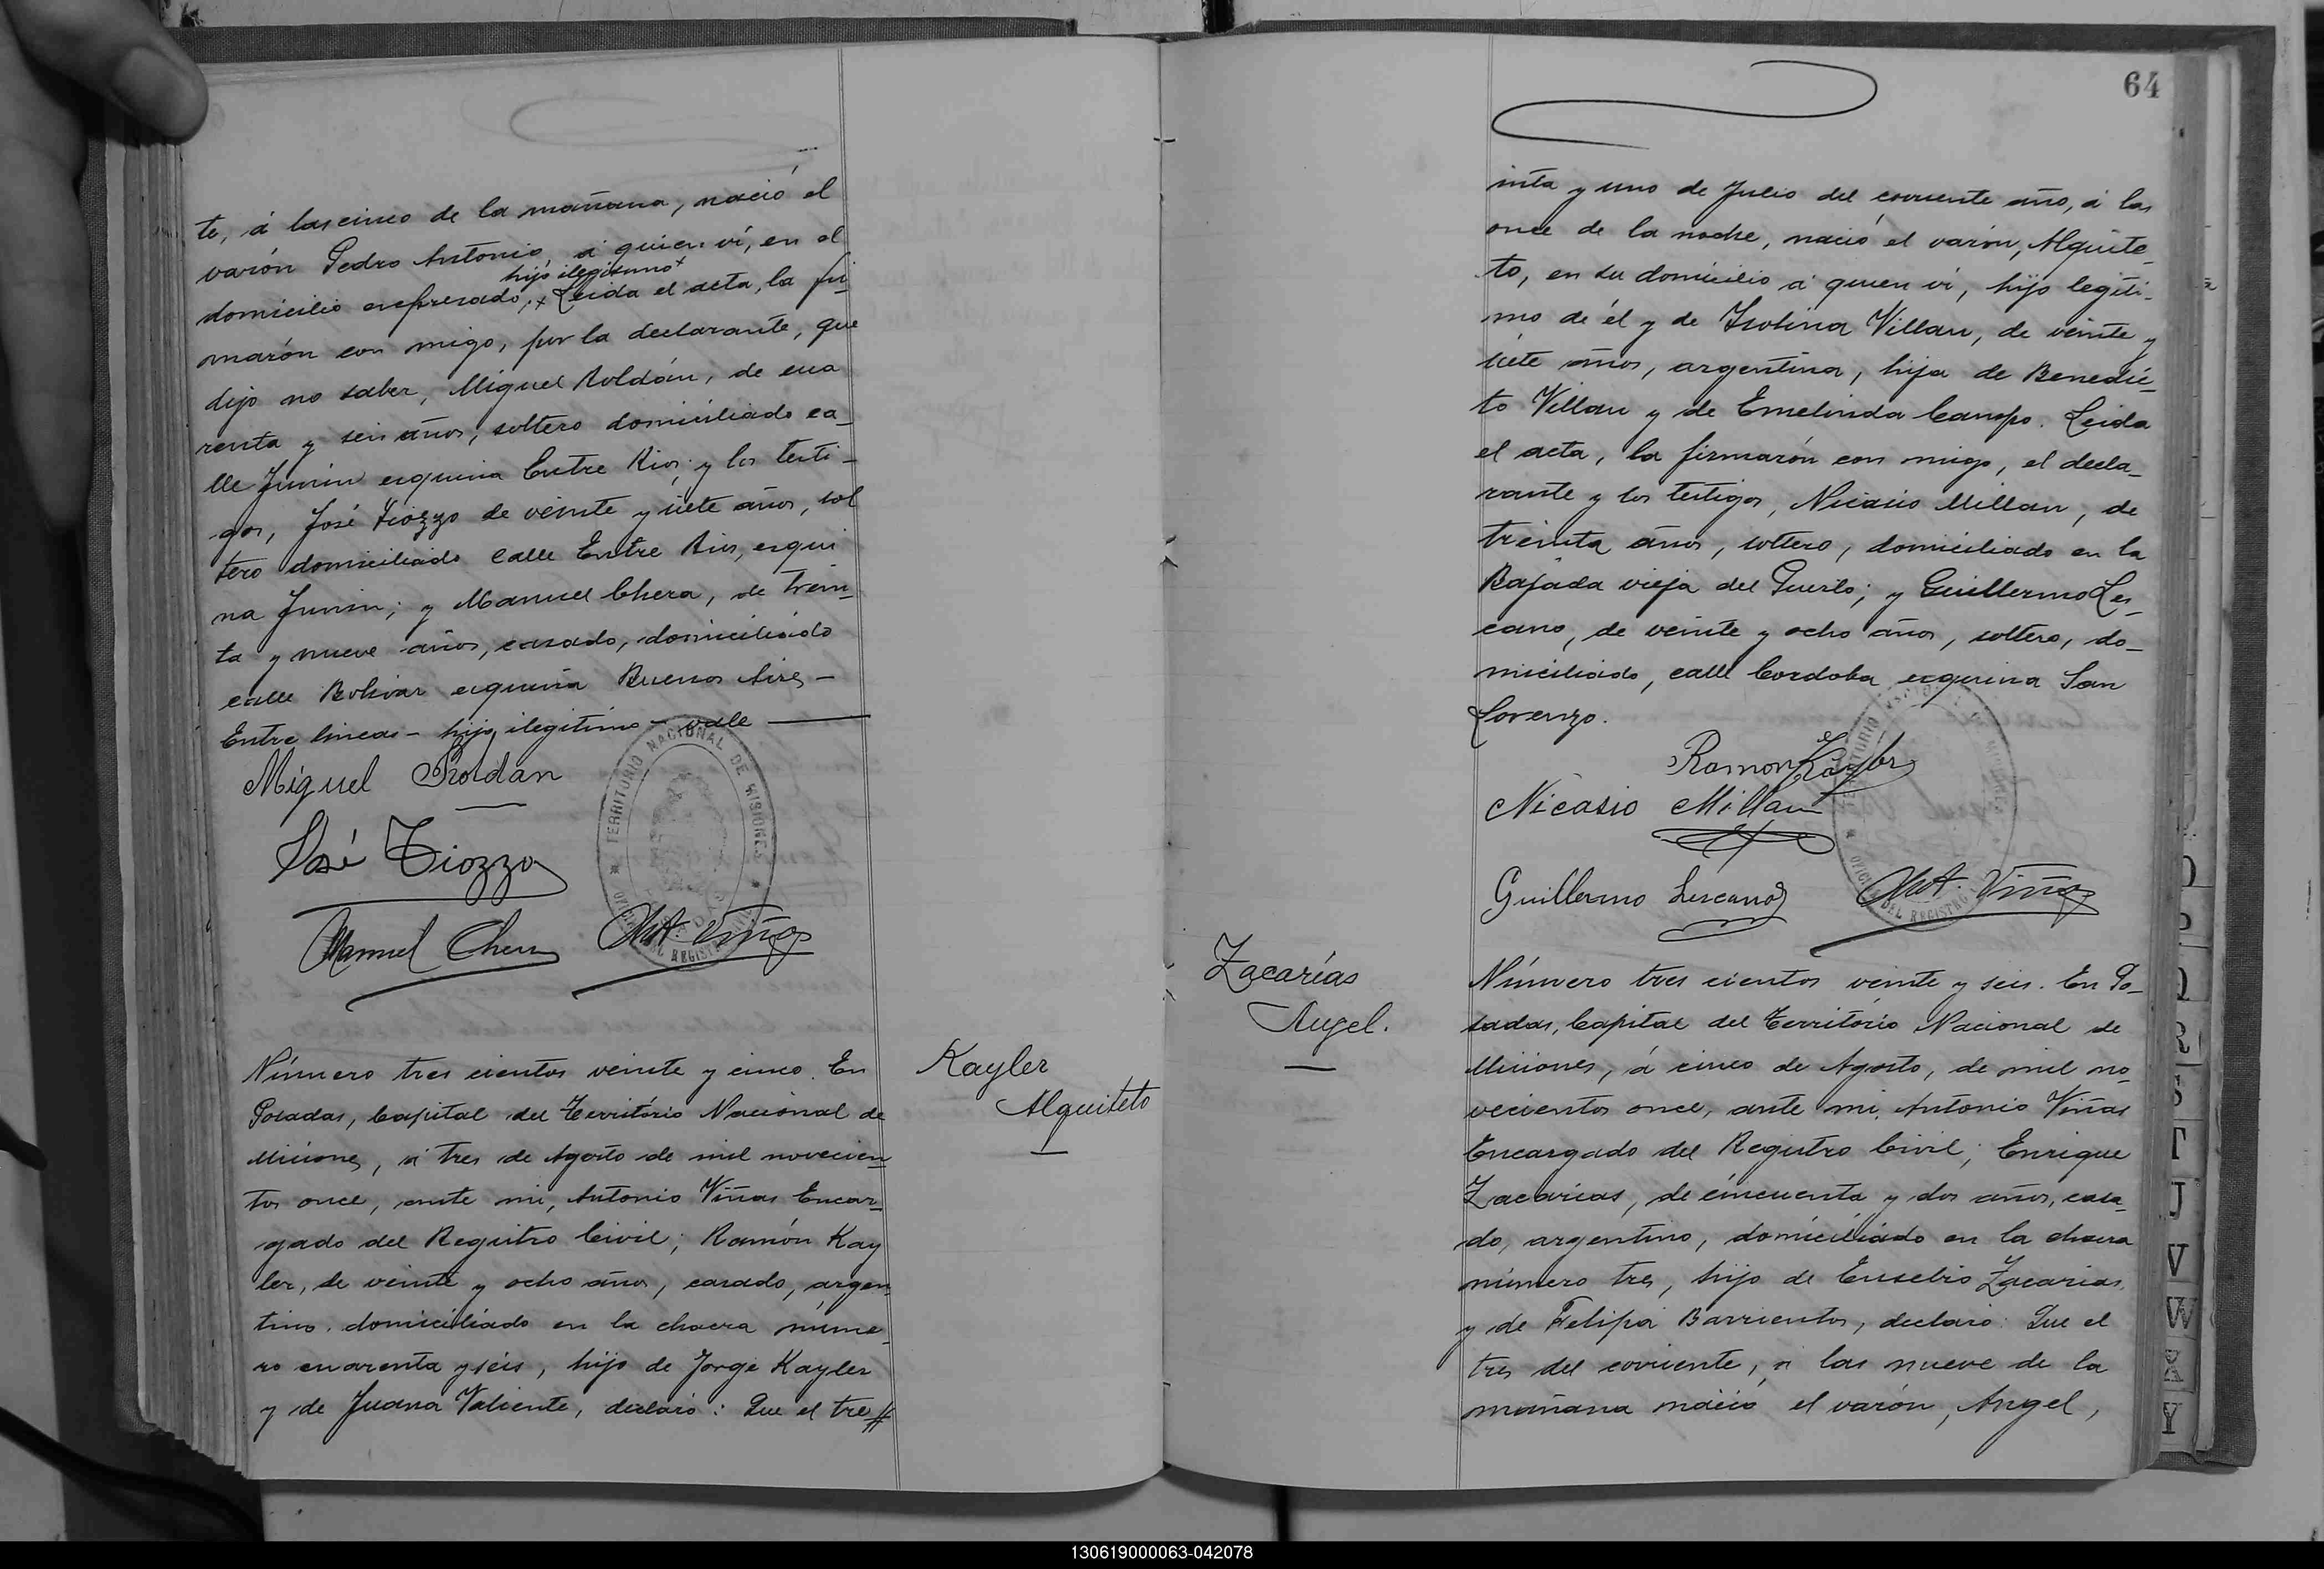 te, á las cinco de la mañana, nació el
varón Pedro Antonio, á quien ví, en el
hijo ilegitimo x
domicilio expresado, x Leida el acta, la fir
marón con migo, por la declarante, que
dijo no saber, Miguel Roldán, de cua
renta y seis años, soltero domiciliado ca_
lle Junin esquina Entre Rios; y los testi_
gos, José Tiozzo de veinte y siete años, sol
tero domiciliado calle Entre Rios, esqui
na Junin; y Manuel Chera, de trein_
ta y nueve años, casado, domiciliado
calle Bolivar esquina Buenos Aires —
Entre lineas – hijo ilegitimo – vale —
Miguel Roldan
José Tiozzo
Manuel Chera
Ant. Viñas
TERRITORIO NACIONAL DE MISIONES
Número tres cientos veinte y cinco. En
Posadas, Capital del Território Nacional de
Misiones, á tres de Agosto de mil novecien_
tos once, ante mi, Antonio Viñas Encar_
gado del Registro Civil; Ramón Kay
ler, de veinte y ocho años, casado, argen_
tino, domiciliado en la chacra núme_
ro cuarenta y seis, hijo de Jorge Kayler
y de Juana Valiente, declaró: Que el tre//
Kayler
Alquiteto
64
inta y uno de Julio del corriente año, á las
once de la noche, nació el varón, Alquite_
to, en su domicilio á quien ví, hijo legiti_
mo de él y de Isolina Villan, de veinte y
siete años, argentina, hija de Benedic_
to Villan y de Emelinda Campo. Leida
el acta, la firmarón con migo, el decla_
rante y los testigos, Nicasio Millan, de
treinta años, soltero, domiciliado en la
Bajada vieja del Puerto; y Guillermo Les_
cano, de veinte y ocho años, soltero, do_
miciliado, calle Cordoba esquina San
Lorenzo.
Ramon Kayler
Nicasio Millan
Guillermo Lescano
Ant. Viñas
Zacarías
Angel.
Número tres cientos veinte y seis. En Po_
sadas, Capital del Território Nacional de
Misiones, á cinco de Agosto, de mil no_
vecientos once, ante mi, Antonio Viñas
Encargado del Registro Civil; Enrique
Zacarias, de cincuenta y dos años, casa_
do, argentino, domiciliado en la chacra
número tres, hijo de Eusebio Zacarias,
y de Felipa Barrientos, declaró: Que el
tres del corriente, á las nueve de la
mañana nació el varón, Angel,
R
S
T
J
V
W
X
Y
130619000063-042078